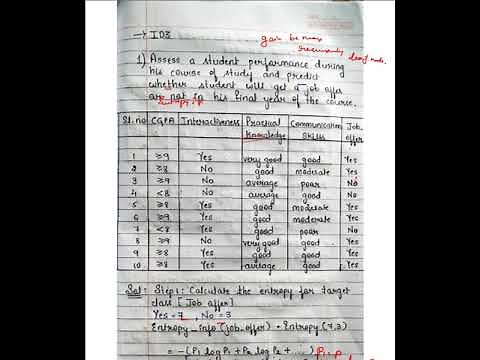 → ID3
gain be max
recursively leaf node.
1) Assess a student performance during
his course of study and predict
whether student will get a job offer
or not in his final year of the course.
Sl.no CGPA Interactiveness Practical Knowledge Communication Skills Job offer
1 ≥9 Yes very good good Yes
2 ≥8 No good moderate Yes
3 ≥9 No average poor No
4 <8 No average good No
5 ≥8 Yes good moderate Yes
6 ≥9 Yes good moderate Yes
7 <8 Yes good poor No
8 ≥9 No very good good Yes
9 ≥8 Yes good good Yes
10 ≥8 Yes average good Yes
Sol: Step 1: Calculate the entropy for target
class [Job offer]
Yes = 7, No = 3
Entropy_info(job_offer) = Entropy(7,3)
= -(P1 log P1 + P2 log P2 + ...)